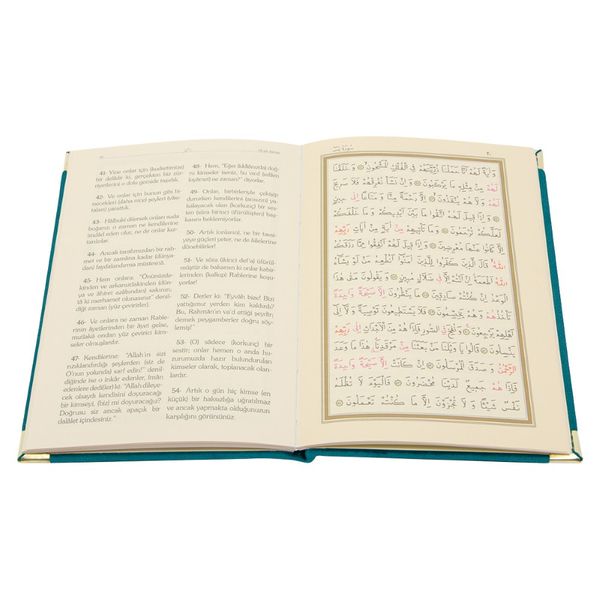 41- Yine onlar için (kudretimize)
bir delildir ki, gerçekten biz zür-
riyetlerini o dolu gemide taşıdık.
42- Ve bunun gibi
binecekleri (daha nice) şeyleri
yarattık.
43- Hâlbuki dilersek onları suda
boğarız; o zaman ne kendilerine
imdâd eden olur, ne de onlar kur-
tarılırlar.
44- Ancak tarafımızdan bir rah-
met ve bir zamana kadar (dünya-
dan) faydalandırma müstesnâ.
45- Hem onlara: "Önünüzde-
kinden ve arkanızdakinden (dün-
ya ve âhiret azâbından) sakının;
tâ ki merhamet olunasınız" denil-
diği zaman (yüz çevirirler).
46- Ve onlara ne zaman Rable-
rinin âyetlerinden bir âyet gelse,
mutlaka ondan yüz çeviren kim-
seler olmuşlardır.
47- Kendilerine: "Allah'ın sizi
rızıklandırdığı şeylerden (siz de
O'nun yolunda) sarf edin!" denil-
diğinde ise o inkâr edenler, îmân
edenlere dediler ki: "Allah dileye-
cek olsaydı kendisini doyuracağı
bir kimseyi, (biz) mi doyuracağız?
Doğrusu siz ancak apaçık bir
dalâlet içindesiniz."
48- Hem, "Eğer (iddiânızda) doğru
kimseler iseniz, bu vaad (edilen
kıyâmet) ne zaman?" diyorlar.
49- Onlar, birbirleriyle çekişip
dururlarken kendilerini (ansızın) ya-
kalayacak olan (korkunç) bir ses-
ten (sûra birinci üfürülüşten) baş-
kasını beklemiyorlar.
50- Artık (onlar) ne bir tavsi-
yeye güçleri yeter, ne de âilelerine
dönebilirler.
51- Ve sûra (ikinci def'a) üfürül-
müştür de bakarsın ki onlar kabir-
lerinden (kalkıp) Rablerine koşu-
yorlar.
52- Derler ki: "Eyvâh bize! Bizi
yattığımız yerden kim kaldırdı?
Bu, Rahmân'ın va'd ettiği şeydir;
demek peygamberler doğru söyle-
miş!"
53- (O) sâdece (korkunç) bir
sestir; onlar hemen o anda hu-
zûrumuzda hazır bulundurulan
kimseler olarak, toplanacak olan-
lardır.
54- Artık o gün hiç kimse (en
küçük) bir haksızlığa uğratılmaz
ve ancak yapmakta olduğunuzun
karşılığını görürsünüz.
وَاٰيَةٌ لَهُمْ اَنَّا حَمَلْنَا ذُرِّيَّتَهُمْ فِي الْفُلْكِ الْمَشْحُونِ وَخَلَقْنَا
لَهُمْ مِنْ مِثْلِهِ مَا يَرْكَبُونَ وَاِنْ نَشَأْ نُغْرِقْهُمْ فَلَا صَرِيخَ
لَهُمْ وَلَا هُمْ يُنْقَذُونَ اِلَّا رَحْمَةً مِنَّا وَمَتَاعًا اِلٰى حِينٍ
وَاِذَا قِيلَ لَهُمُ اتَّقُوا مَا بَيْنَ اَيْدِيكُمْ وَمَا خَلْفَكُمْ
لَعَلَّكُمْ تُرْحَمُونَ وَمَا تَأْتِيهِمْ مِنْ اٰيَةٍ مِنْ اٰيَاتِ رَبِّهِمْ
اِلَّا كَانُوا عَنْهَا مُعْرِضِينَ وَاِذَا قِيلَ لَهُمْ اَنْفِقُوا مِمَّا رَزَقَكُمُ
اللّٰهُ قَالَ الَّذِينَ كَفَرُوا لِلَّذِينَ اٰمَنُوا اَنُطْعِمُ مَنْ لَوْ يَشَاءُ
اللّٰهُ اَطْعَمَهُ اِنْ اَنْتُمْ اِلَّا فِي ضَلَالٍ مُبِينٍ وَيَقُولُونَ مَتٰى هٰذَا
الْوَعْدُ اِنْ كُنْتُمْ صَادِقِينَ مَا يَنْظُرُونَ اِلَّا صَيْحَةً وَاحِدَةً
تَأْخُذُهُمْ وَهُمْ يَخِصِّمُونَ فَلَا يَسْتَطِيعُونَ تَوْصِيَةً وَلَا اِلٰى
اَهْلِهِمْ يَرْجِعُونَ وَنُفِخَ فِي الصُّورِ فَاِذَا هُمْ مِنَ الْاَجْدَاثِ اِلٰى رَبِّهِمْ
يَنْسِلُونَ قَالُوا يَا وَيْلَنَا مَنْ بَعَثَنَا مِنْ مَرْقَدِنَا هٰذَا مَا وَعَدَ
الرَّحْمٰنُ وَصَدَقَ الْمُرْسَلُونَ اِنْ كَانَتْ اِلَّا صَيْحَةً وَاحِدَةً
فَاِذَا هُمْ جَمِيعٌ لَدَيْنَا مُحْضَرُونَ فَالْيَوْمَ لَا تُظْلَمُ
نَفْسٌ شَيْئًا وَلَا تُجْزَوْنَ اِلَّا مَا كُنْتُمْ تَعْمَلُونَ